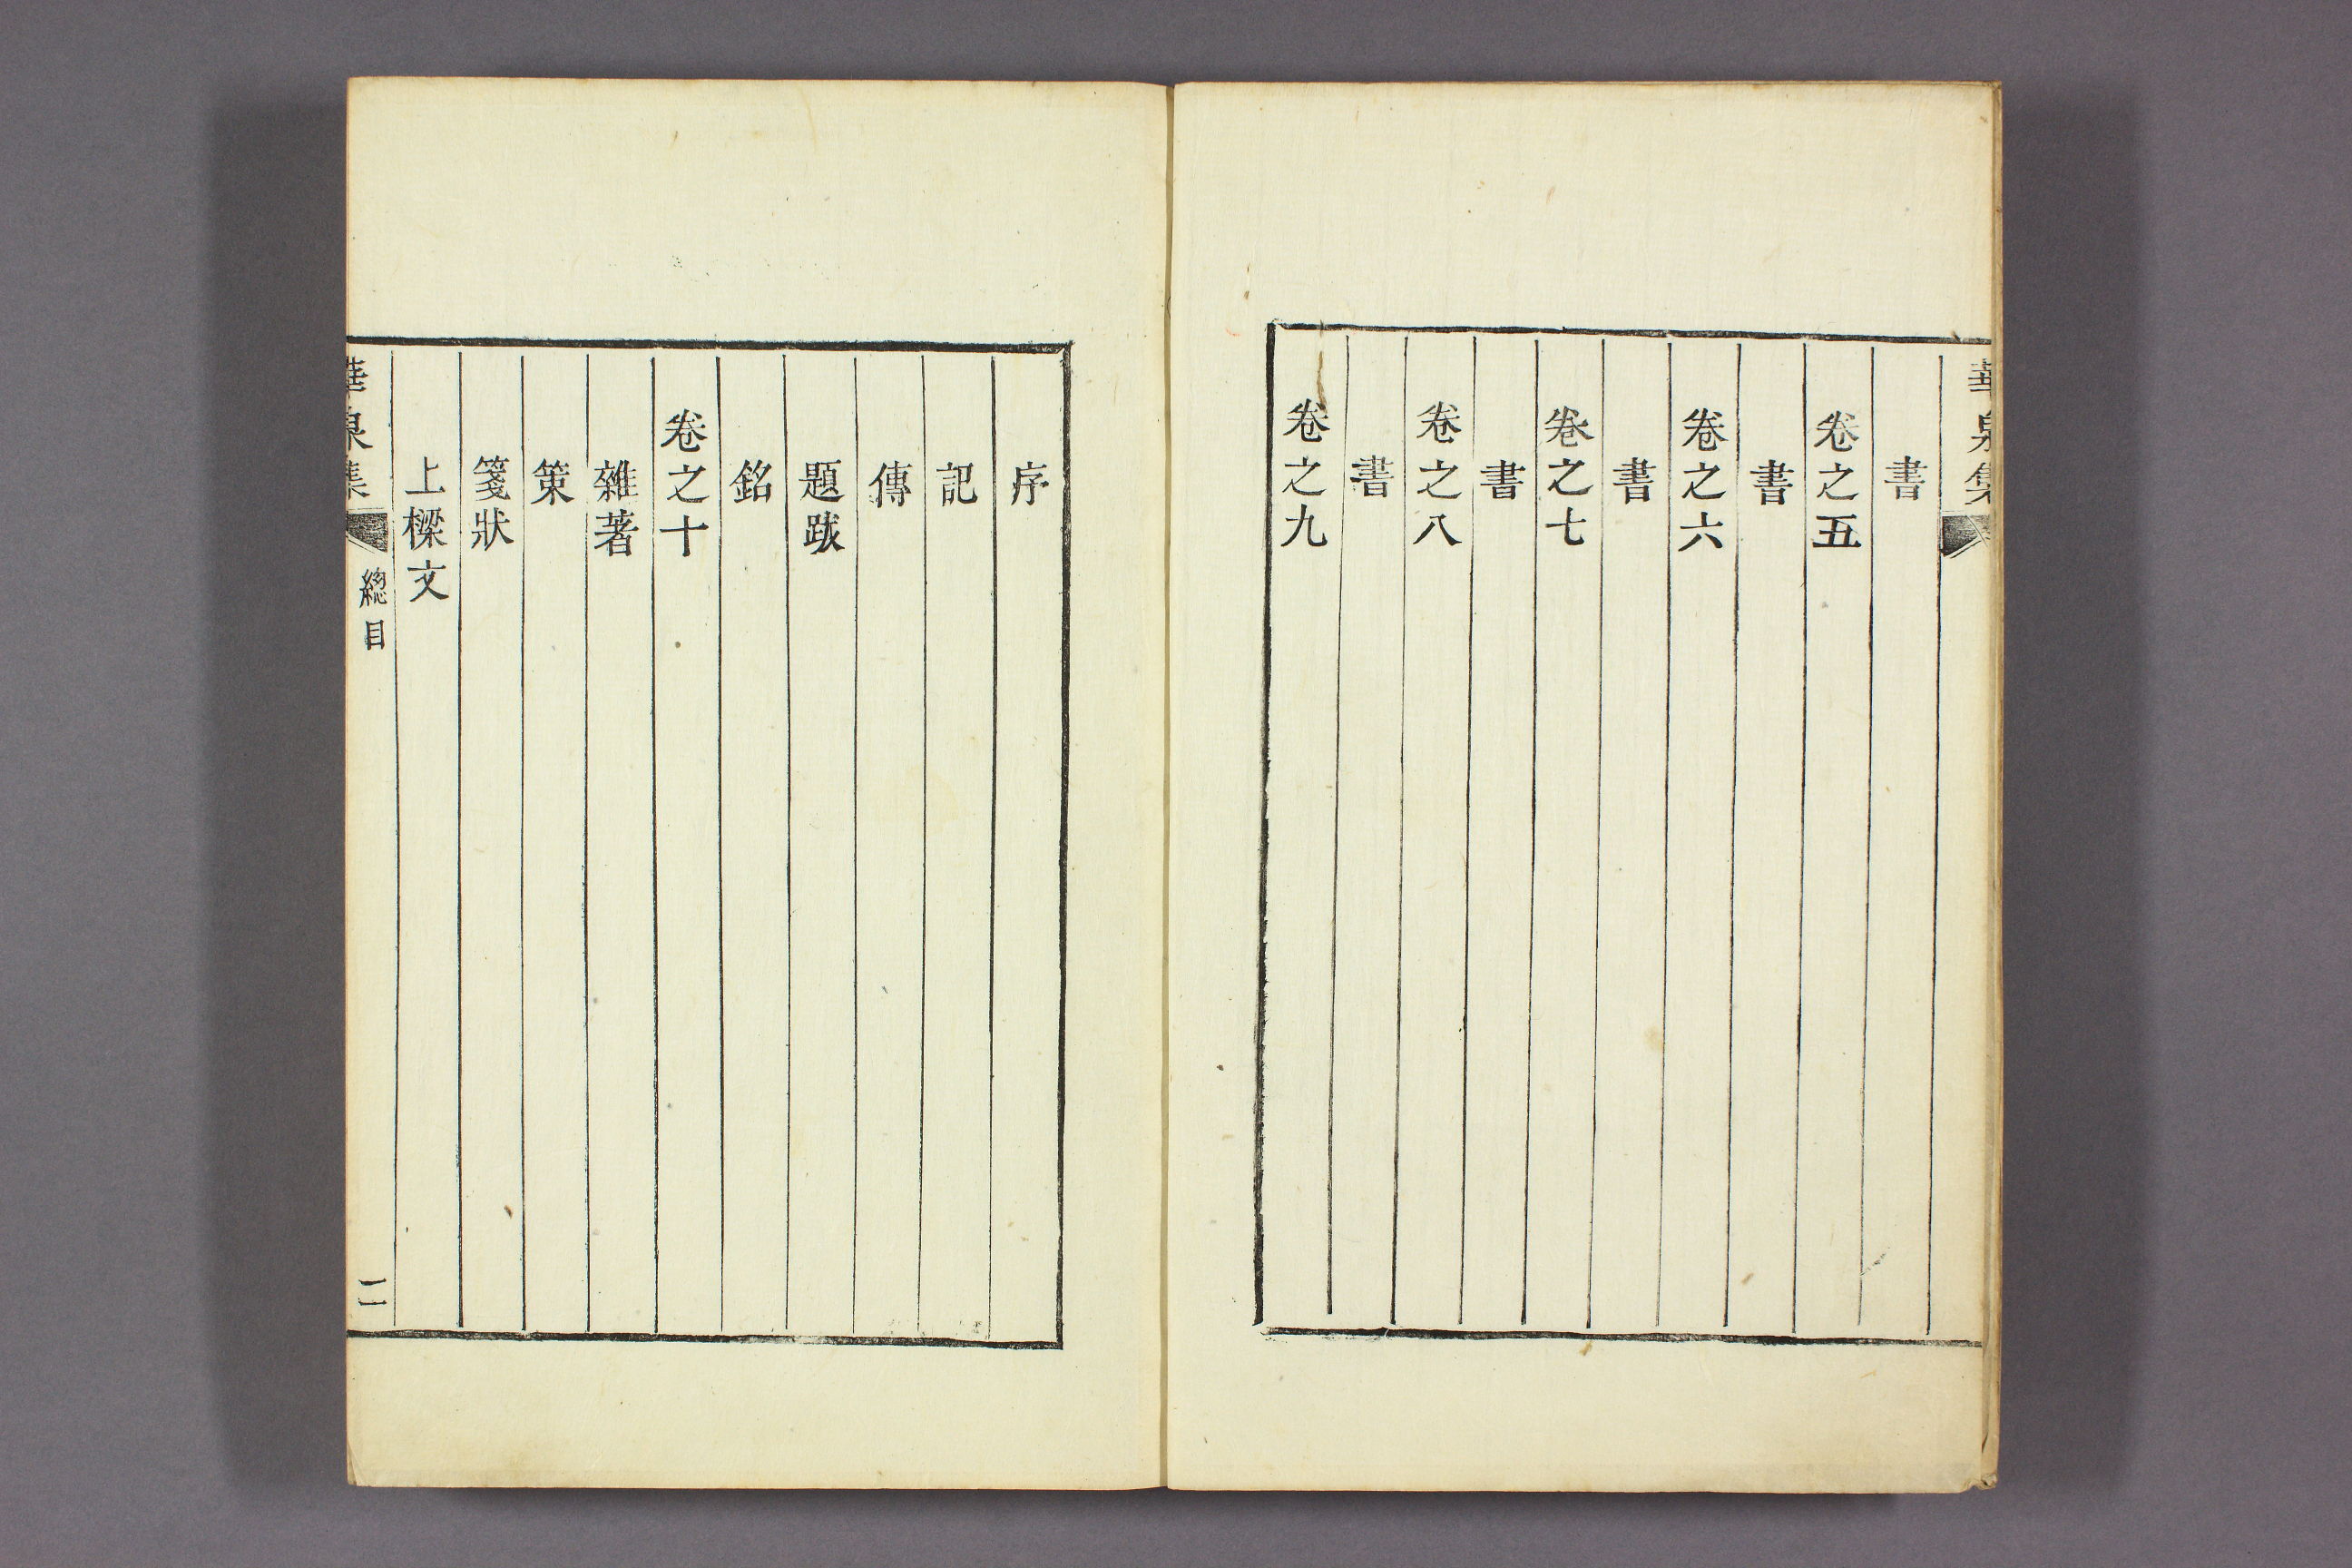 華泉集
書
卷之五
書
卷之六
書
卷之七
書
卷之八
書
卷之九
序
記
傳
題跋
銘
卷之十
雜著
策
箋狀
上樑文
華泉集
總目
二